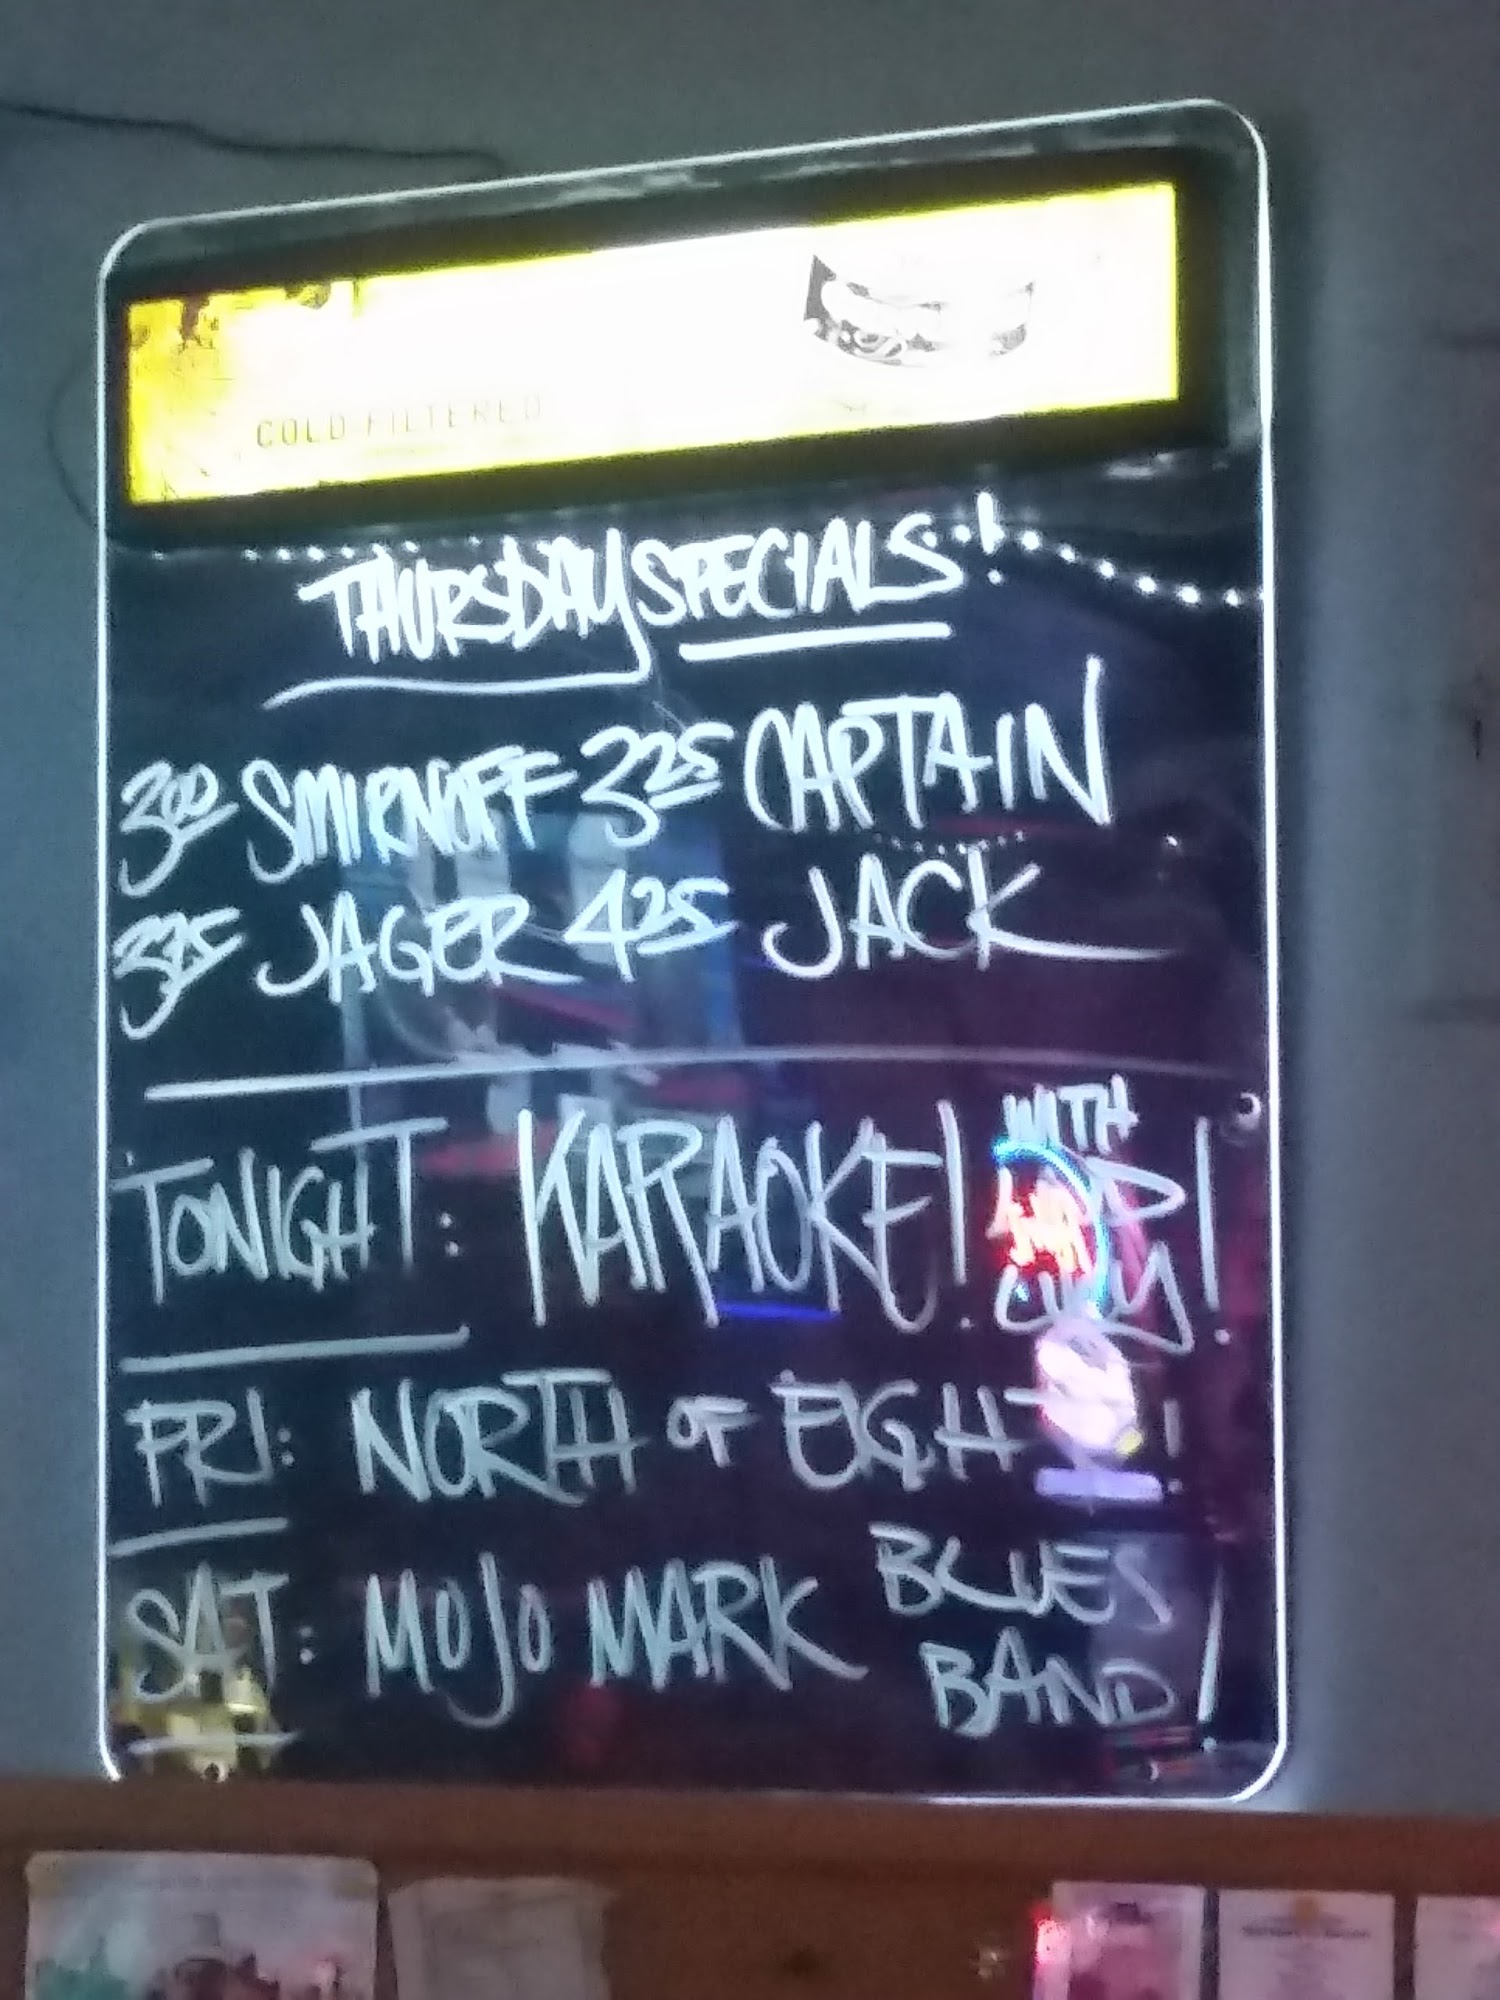 COLD FILTERED
THURSDAY SPECIALS!
300 SMIRNOFF 325 CAPTAIN
375 JAGER 425 JACK
TONIGHT: KARAOKE! WITH
!
FRI: NORTH OF EIGHT!
SAT: MOJO MARK BLUES
BAND!